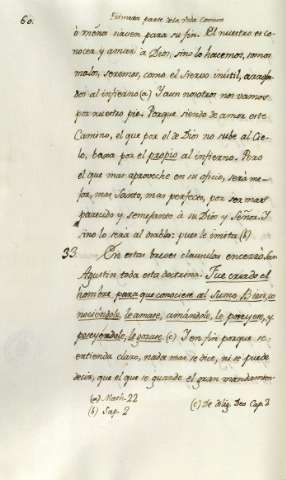 60. Primera parte de la vida Comun
ò menos nacen para su fin. El nuestro es co-
nocer y amar à Dios, sino lo hacemos, somos
malos, seremos, como el siervo inútil, arroja-
dos al infierno (a) Y aun nosotros nos vamos
por nuestro pie. Porque siendo de amor este
Camino, el que por el de Dios no sube al Cie-
lo, baxa por el propio al infierno. Pero
el que mas aproveche en su oficio, será me-
jor, mas Santo, mas perfecto, por ser mas
parecido y semejante à su Dios y Señor. Y
sino lo será al diablo: pues le imita (b)
33. En estas breves clausulas encerró San
Agustin toda esta doctrina. Fue criado el
hombre para que conociese al Sumo Bien, co-
nociendole le amase, amándole, le poseyese, y
poseyéndole, le gozase. (c) Y en fin porque se
entienda claro, nada mas se dice, ni se puede
decir, que el que se guarde el gran mandamien-
(a) Math. 22
(b) Sap. 2
(c) De dilig. Deo Cap. 2